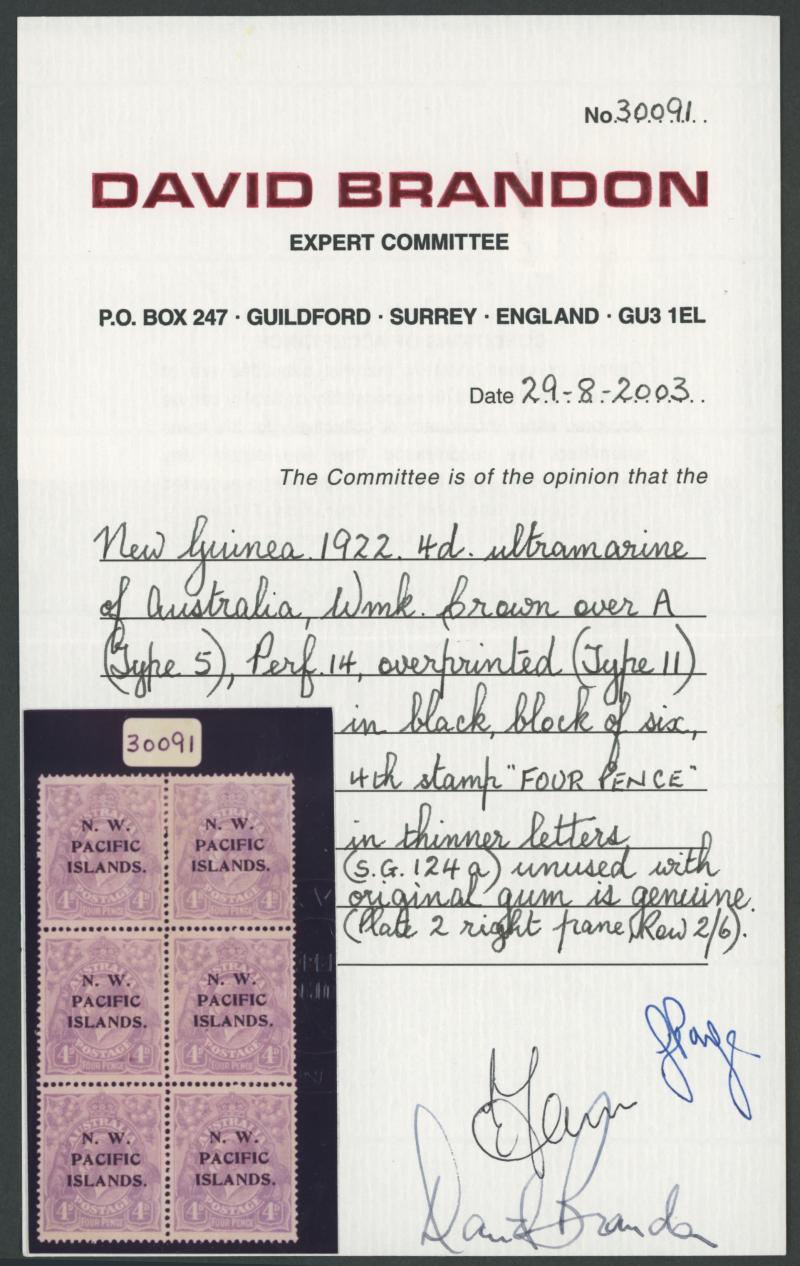 No. 30091
DAVID BRANDON
EXPERT COMMITTEE
P.O. BOX 247 · GUILDFORD · SURREY · ENGLAND · GU3 1EL
Date 29-8-2003
The Committee is of the opinion that the
New Guinea 1922. 4d. ultramarine
of Australia, Wmk. Crown over A
(Type 5), Perf. 14, overprinted (Type 11)
in black, block of six,
4th stamp "FOUR PENCE"
in thinner letters
(S.G. 124a) unused with
original gum is genuine.
(Plate 2 right pane, Row 2/6).
David Brandon
30091
N. W.
PACIFIC
ISLANDS.
4D
4D
FOUR PENCE
N. W.
PACIFIC
ISLANDS.
4D
4D
FOUR PENCE
N. W.
PACIFIC
ISLANDS.
POSTAGE
4D
4D
FOUR PENCE
N. W.
PACIFIC
ISLANDS.
POSTAGE
4D
4D
FOUR PENCE
AUSTRALIA
N. W.
PACIFIC
ISLANDS.
POSTAGE
4D
4D
FOUR PENCE
AUSTRALIA
N. W.
PACIFIC
ISLANDS.
POSTAGE
4D
4D
FOUR PENCE